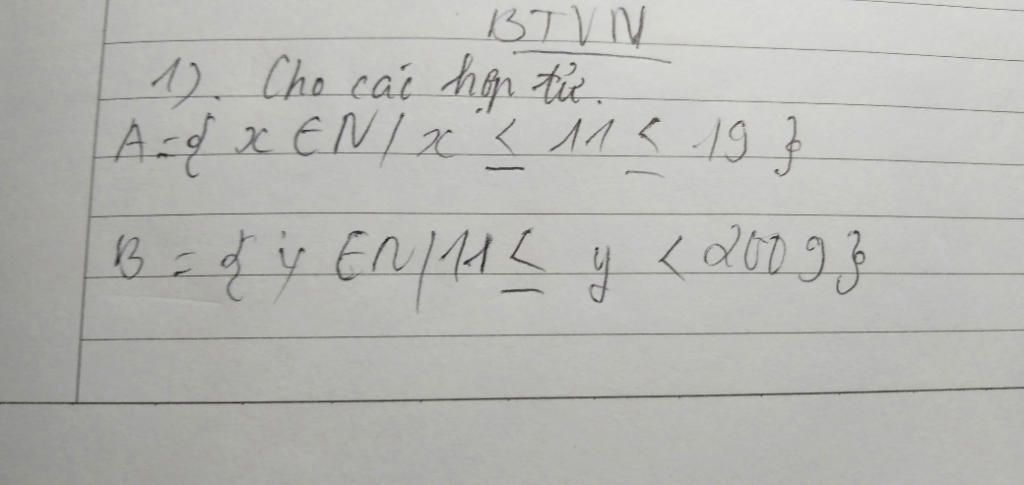 BTVN
1). Cho các hợp tử.
A={ x ∈ N / x ≤ 11 ≤ 19 }
B = { y ∈ N / 11 ≤ y < 2009 }